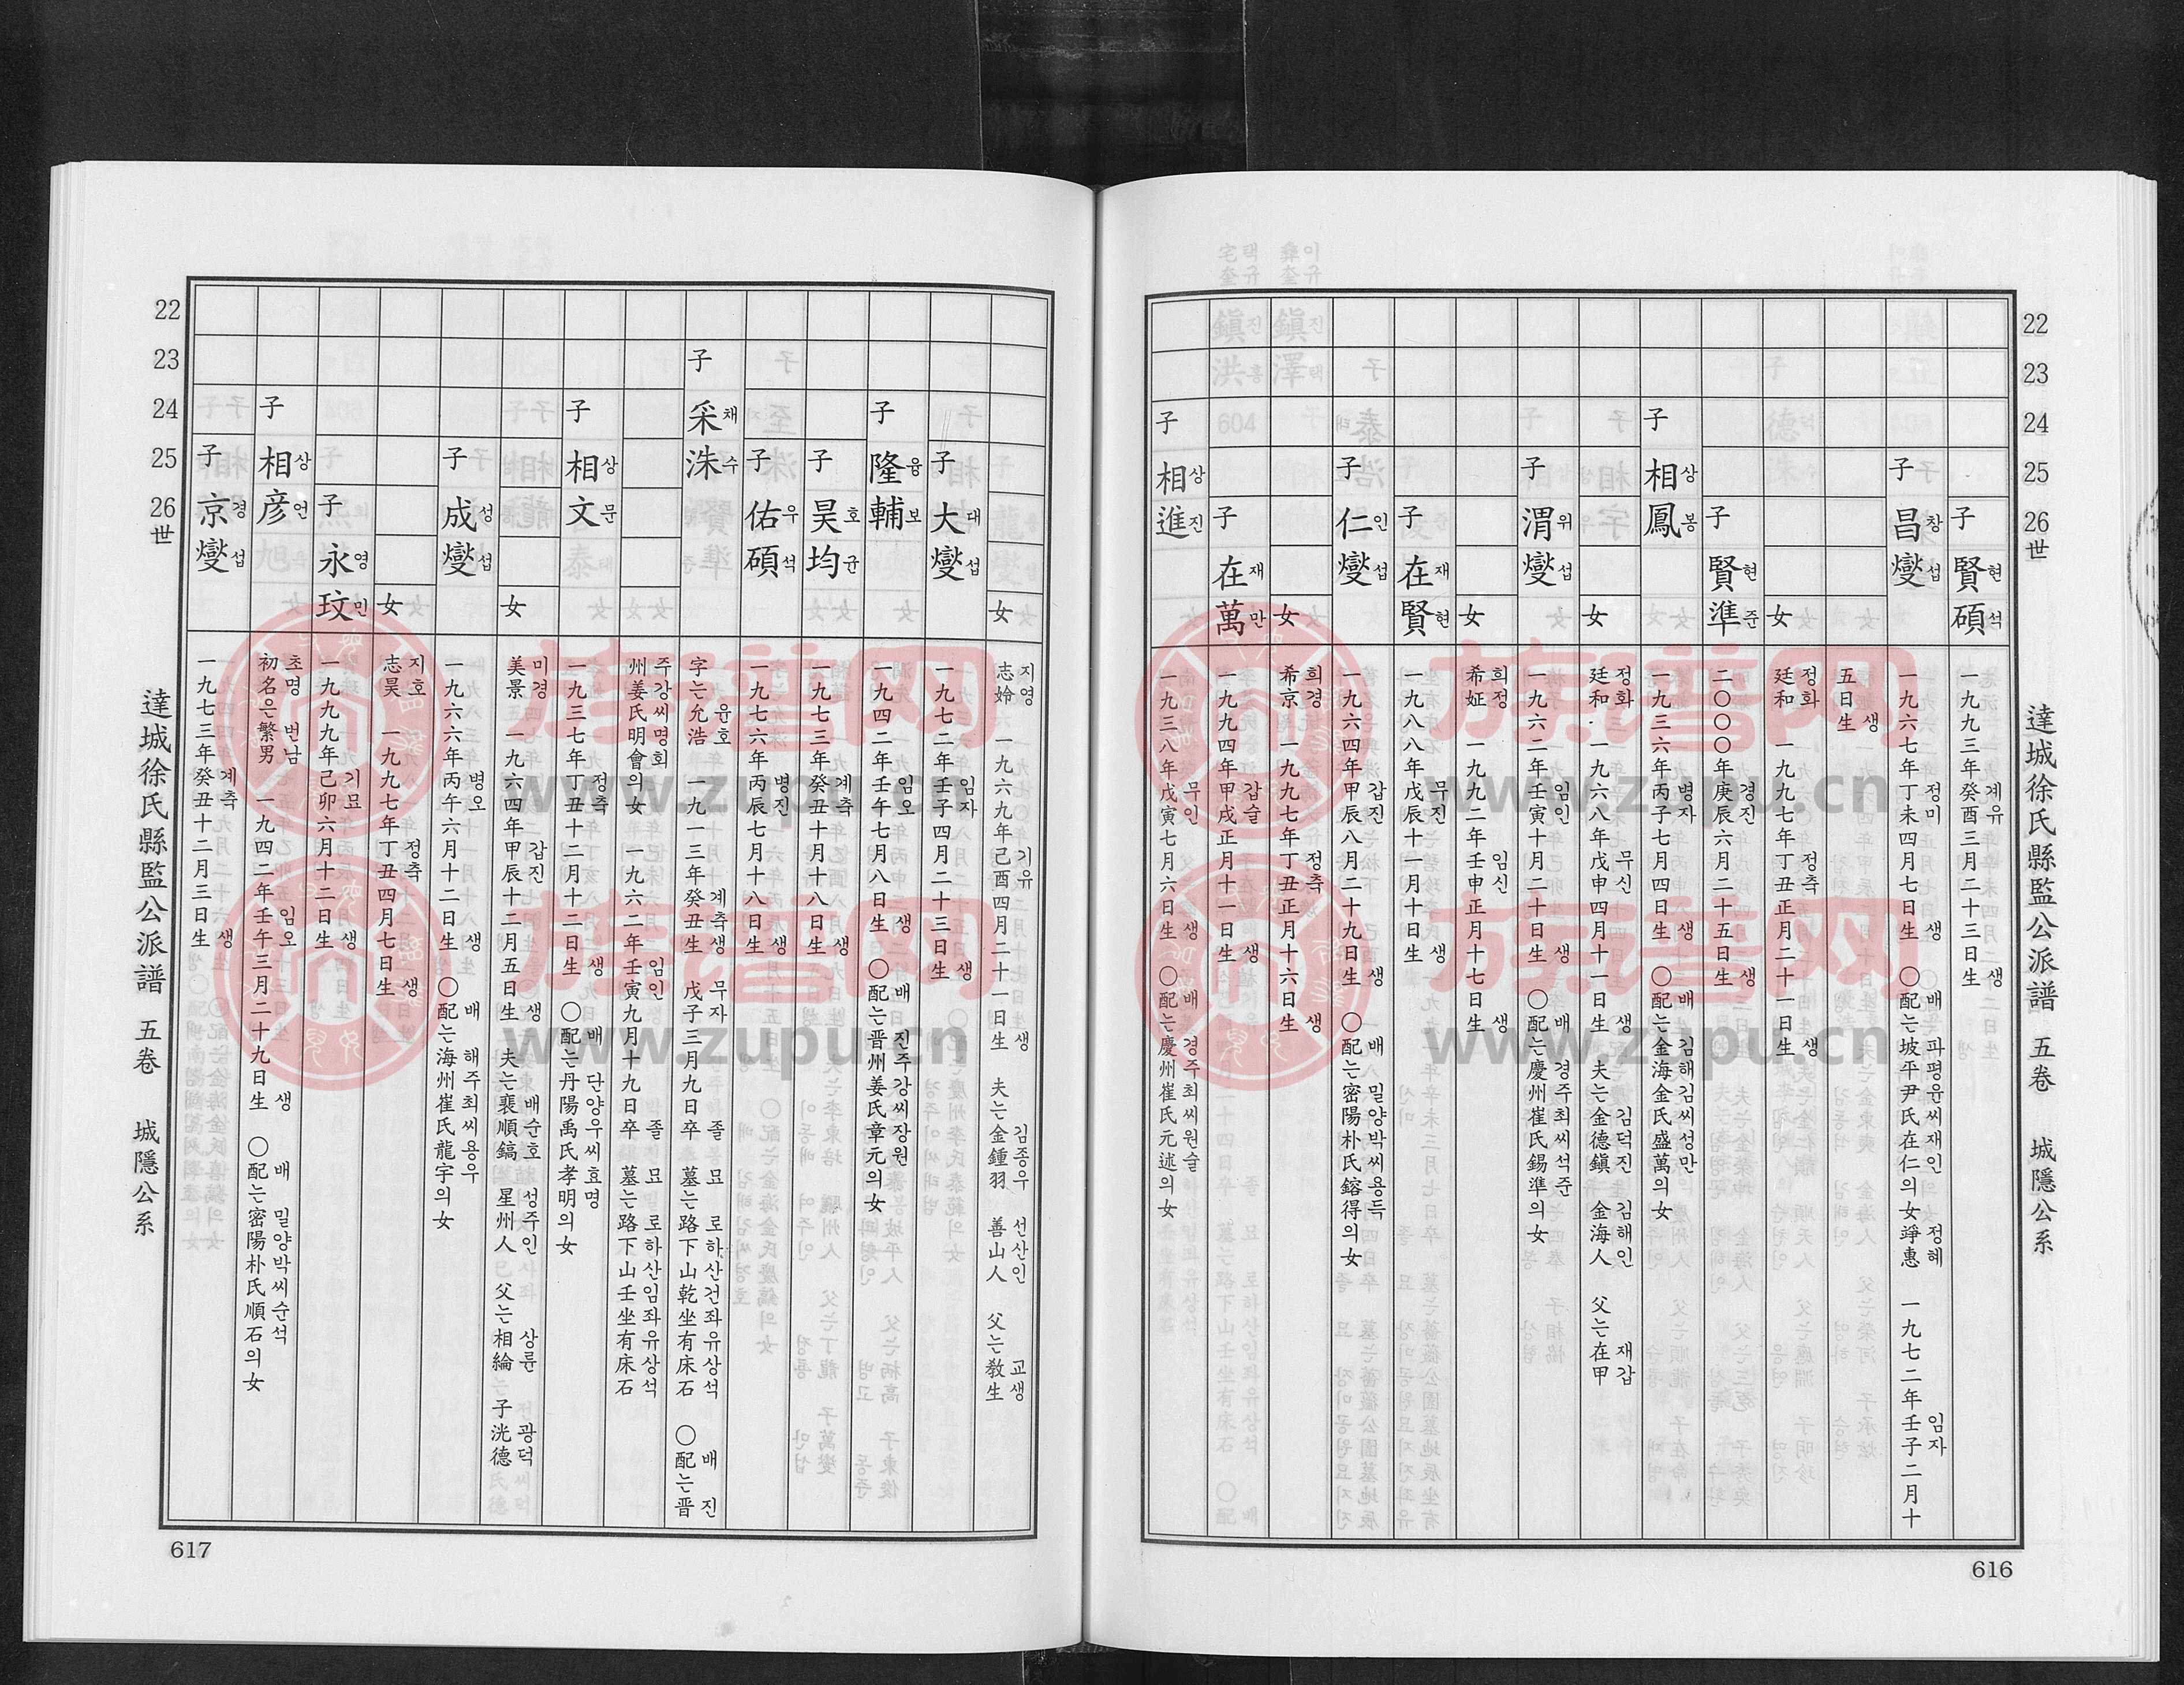 22
23
24
25
26世
達城徐氏縣監公派譜 五卷 城隱公系
子 賢碩 현석
一九九三年癸酉三月二十三日生
계유 생
子 昌燮 창섭
一九六七年丁未四月七日生 ○配는坡平尹氏在仁의女竫惠 一九七二年壬子二月十
정미 생 배 파평윤씨재인 정혜 임자
五日生
생
女
廷和 一九九七年丁丑正月二十一日生
정화 정축 생
子 賢準 현준
二○○○年庚辰六月二十五日生
경진 생
子 相鳳 상봉
一九三六年丙子七月四日生 ○配는金海金氏盛萬의女
병자 생 배 김해김씨성만
女
廷和 一九六八年戊申四月十一日生 夫는金德鎭 金海人 父는在甲
정화 무신 생 김덕진 김해인 재갑
子 渭燮 위섭
一九六二年壬寅十月二十日生 ○配는慶州崔氏錫準의女
임인 생 배 경주최씨석준
女
希姃 一九九二年壬申正月十七日生
희정 임신 생
子 在賢 재현
一九八八年戊辰十一月十日生
무진 생
子 仁燮 인섭
一九六四年甲辰八月二十九日生 ○配는密陽朴氏鎔得의女
갑진 생 배 밀양박씨용득
女
希京 一九九七年丁丑正月十六日生
희경 정축 생
子 在萬 재만
一九九四年甲戌正月十一日生
갑술 생
子 相進 상진
一九三八年戊寅七月六日生 ○配는慶州崔氏元述의女
무인 생 배 경주최씨원술
616
女
志姈 一九六九年己酉四月二十一日生 夫는金鍾羽 善山人 父는敎生
지영 기유 생 김종우 선산인 교생
子 大燮 대섭
一九七二年壬子四月二十三日生
임자 생
子 隆輔 융보
一九四二年壬午七月八日生 ○配는晋州姜氏章元의女
임오 생 배 진주강씨장원
子 昊均 호균
一九七三年癸丑十月十八日生
계축 생
子 佑碩 우석
一九七六年丙辰七月十八日生
병진 생
子 采洙 채수
字는允浩 一九一三年癸丑生 戊子三月九日卒 墓는路下山乾坐有床石 ○配는晋
윤호 계축생 무자 졸 묘 로하산건좌유상석 배 진
州姜氏明會의女 一九六二年壬寅九月十九日卒 墓는路下山壬坐有床石
주강씨명회 임인 졸 묘 로하산임좌유상석
子 相文 상문
一九三七年丁丑十二月十二日生 ○配는丹陽禹氏孝明의女
정축 생 배 단양우씨효명
女
美景 一九六四年甲辰十二月五日生 夫는裵順鎬 星州人 父는相綸 子洸德
미경 갑진 생 배순호 성주인 상륜 광덕
子 成燮 성섭
一九六六年丙午六月十二日生 ○配는海州崔氏龍宇의女
병오 생 배 해주최씨용우
女
志昊 一九九七年丁丑四月七日生
지호 정축 생
子 永玟 영민
一九九九年己卯六月十二日生
기묘 생
子 相彦 상언
初名은繁男 一九四二年壬午三月二十九日生 ○配는密陽朴氏順石의女
초명 번남 임오 생 배 밀양박씨순석
子 京燮 경섭
一九七三年癸丑十二月三日生
계축 생
22
23
24
25
26世
達城徐氏縣監公派譜 五卷 城隱公系
617
族谱网
www.zupu.cn
族谱网
www.zupu.cn
族谱网
www.zupu.cn
族谱网
www.zupu.cn